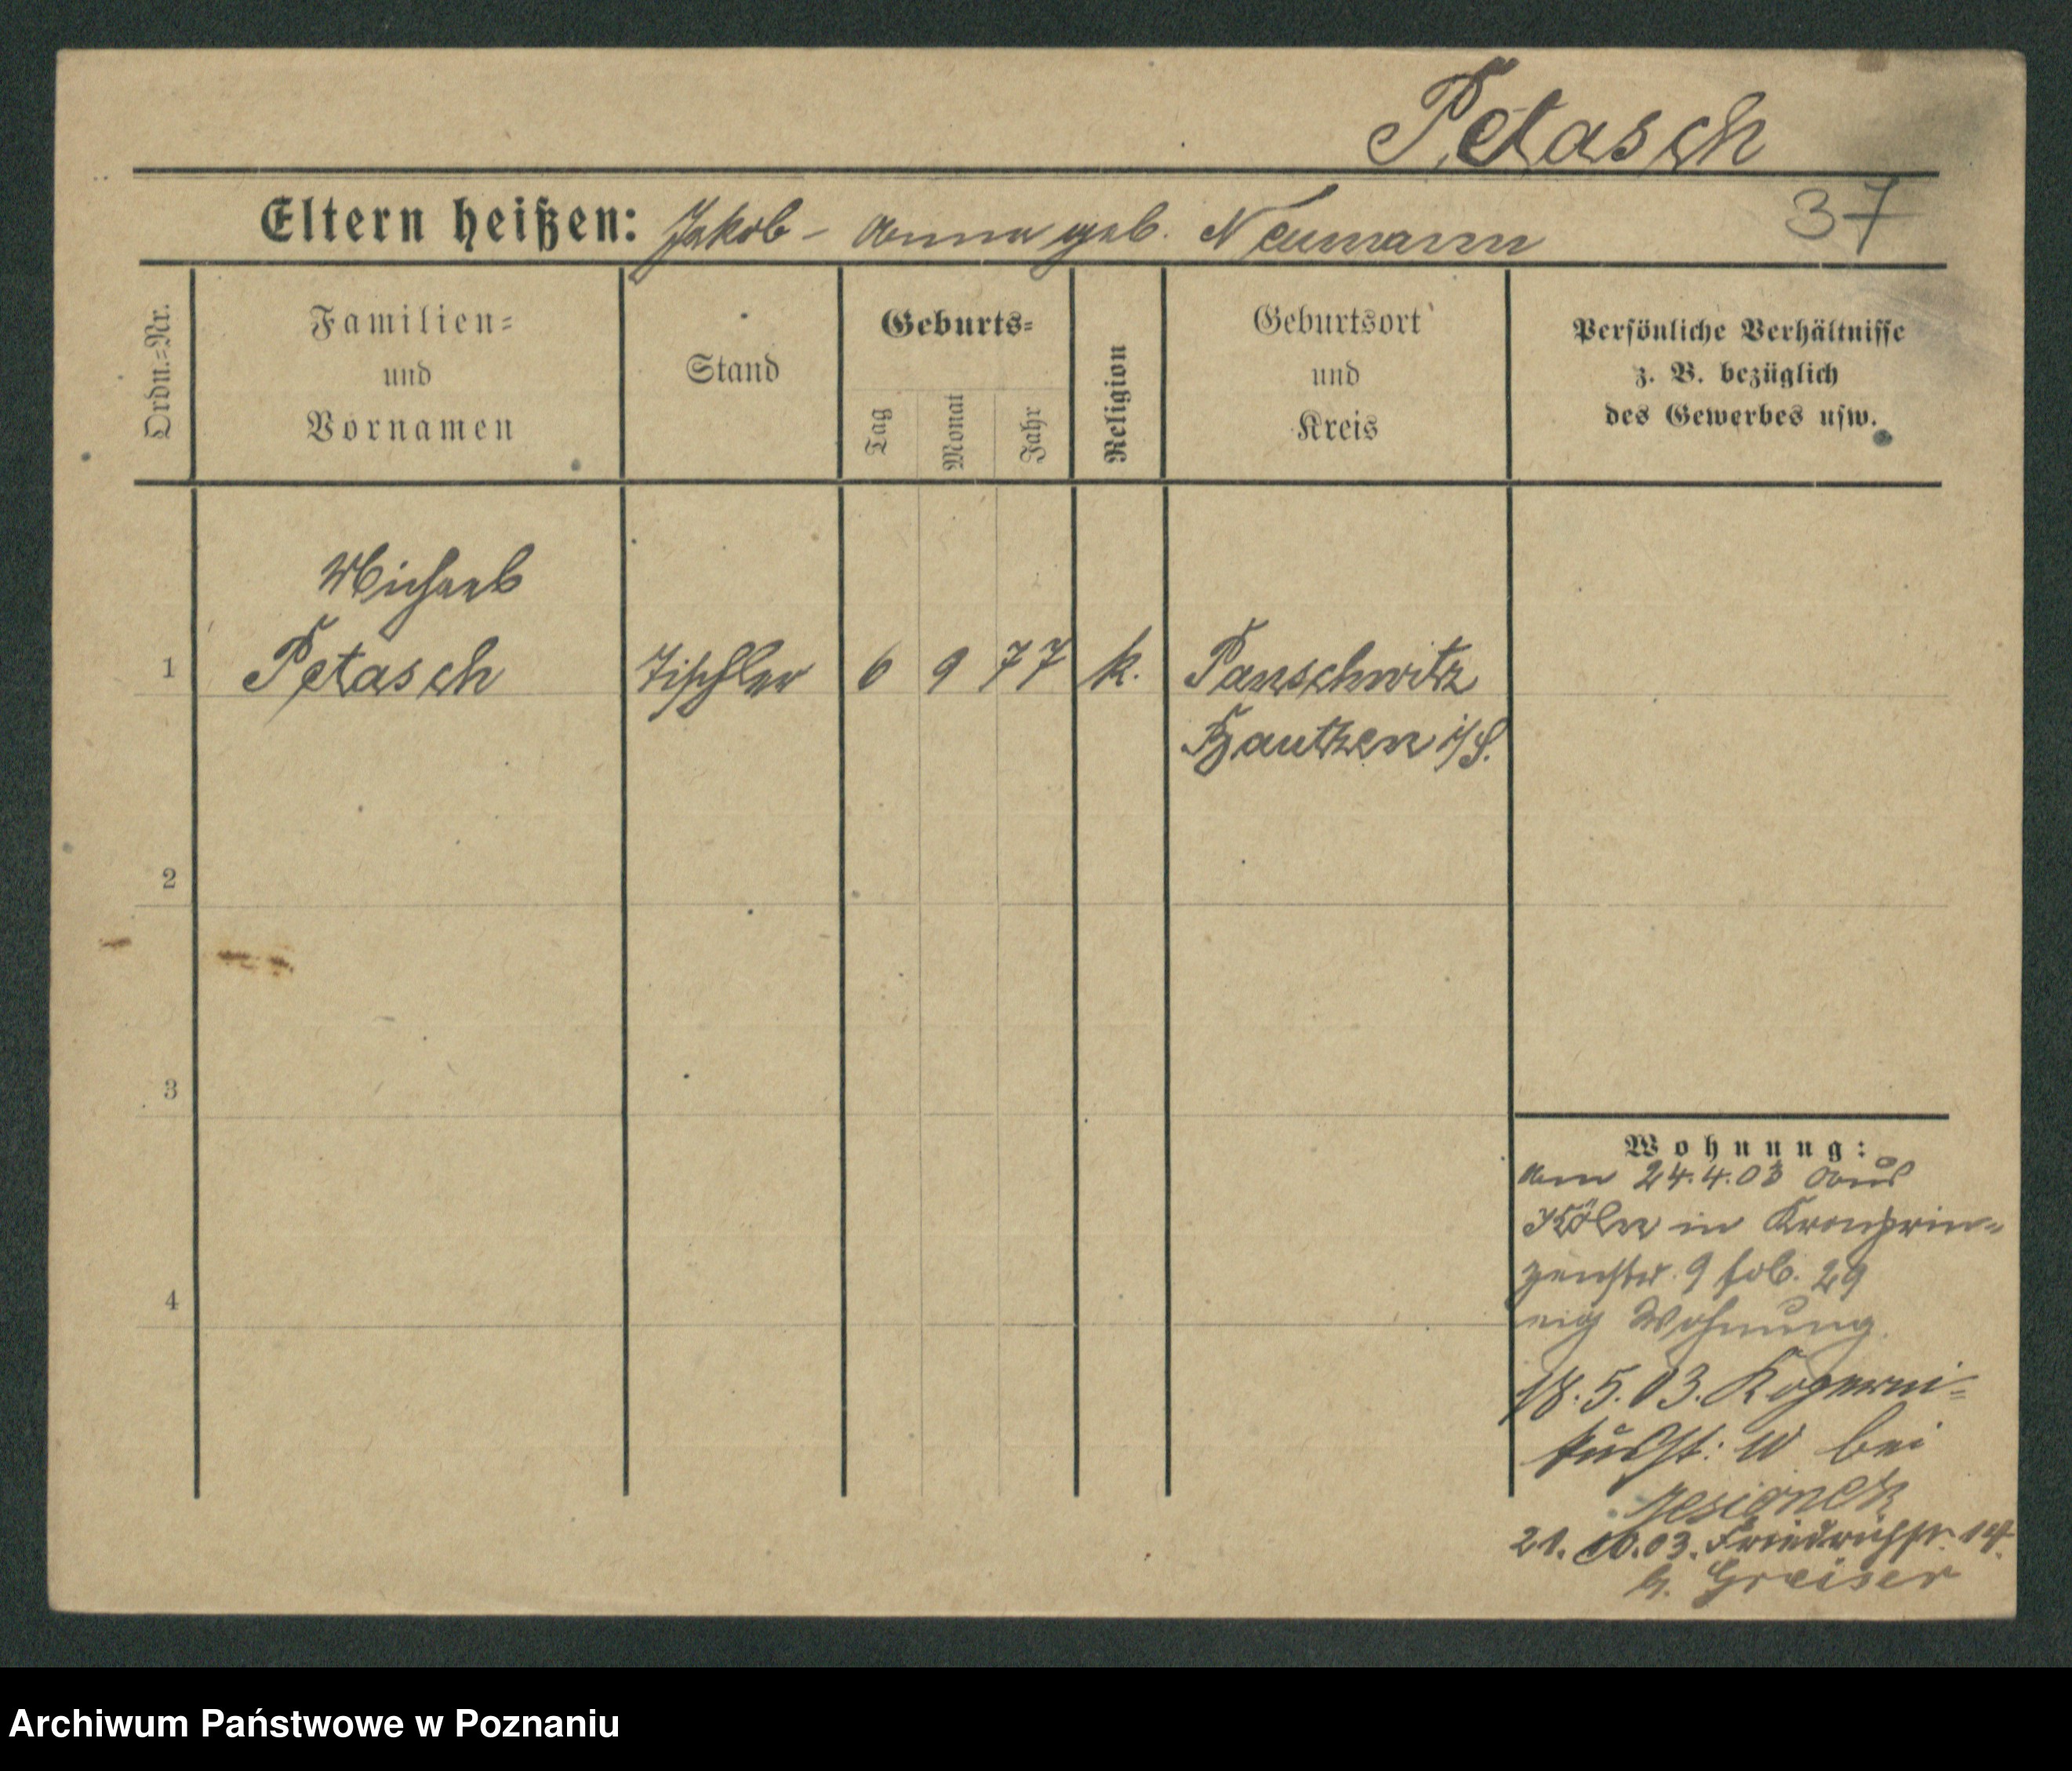 Petasch
Eltern heißen: Jakob - Anna geb. Neumann
37
Ordn.=Nr.
Familien=
und
Vornamen
Stand
Geburts=
Tag
Monat
Jahr
Religion
Geburtsort
und
Kreis
Persönliche Verhältnisse
z. B. bezüglich
des Gewerbes usw.
Michael
1 Petasch Tischler 6 9 77 k. Panschwitz
Bautzen i/S.
2
3
4
Wohnung:
am 24.4.03 aus
Köln in Kronprin=
zenstr. 9
Wohnung.
18.5.03. Koperni=
kusst: 10 bei
Jesionek
21.10.03. Friedrichstr. 14.
b. Greiser
Archiwum Państwowe w Poznaniu